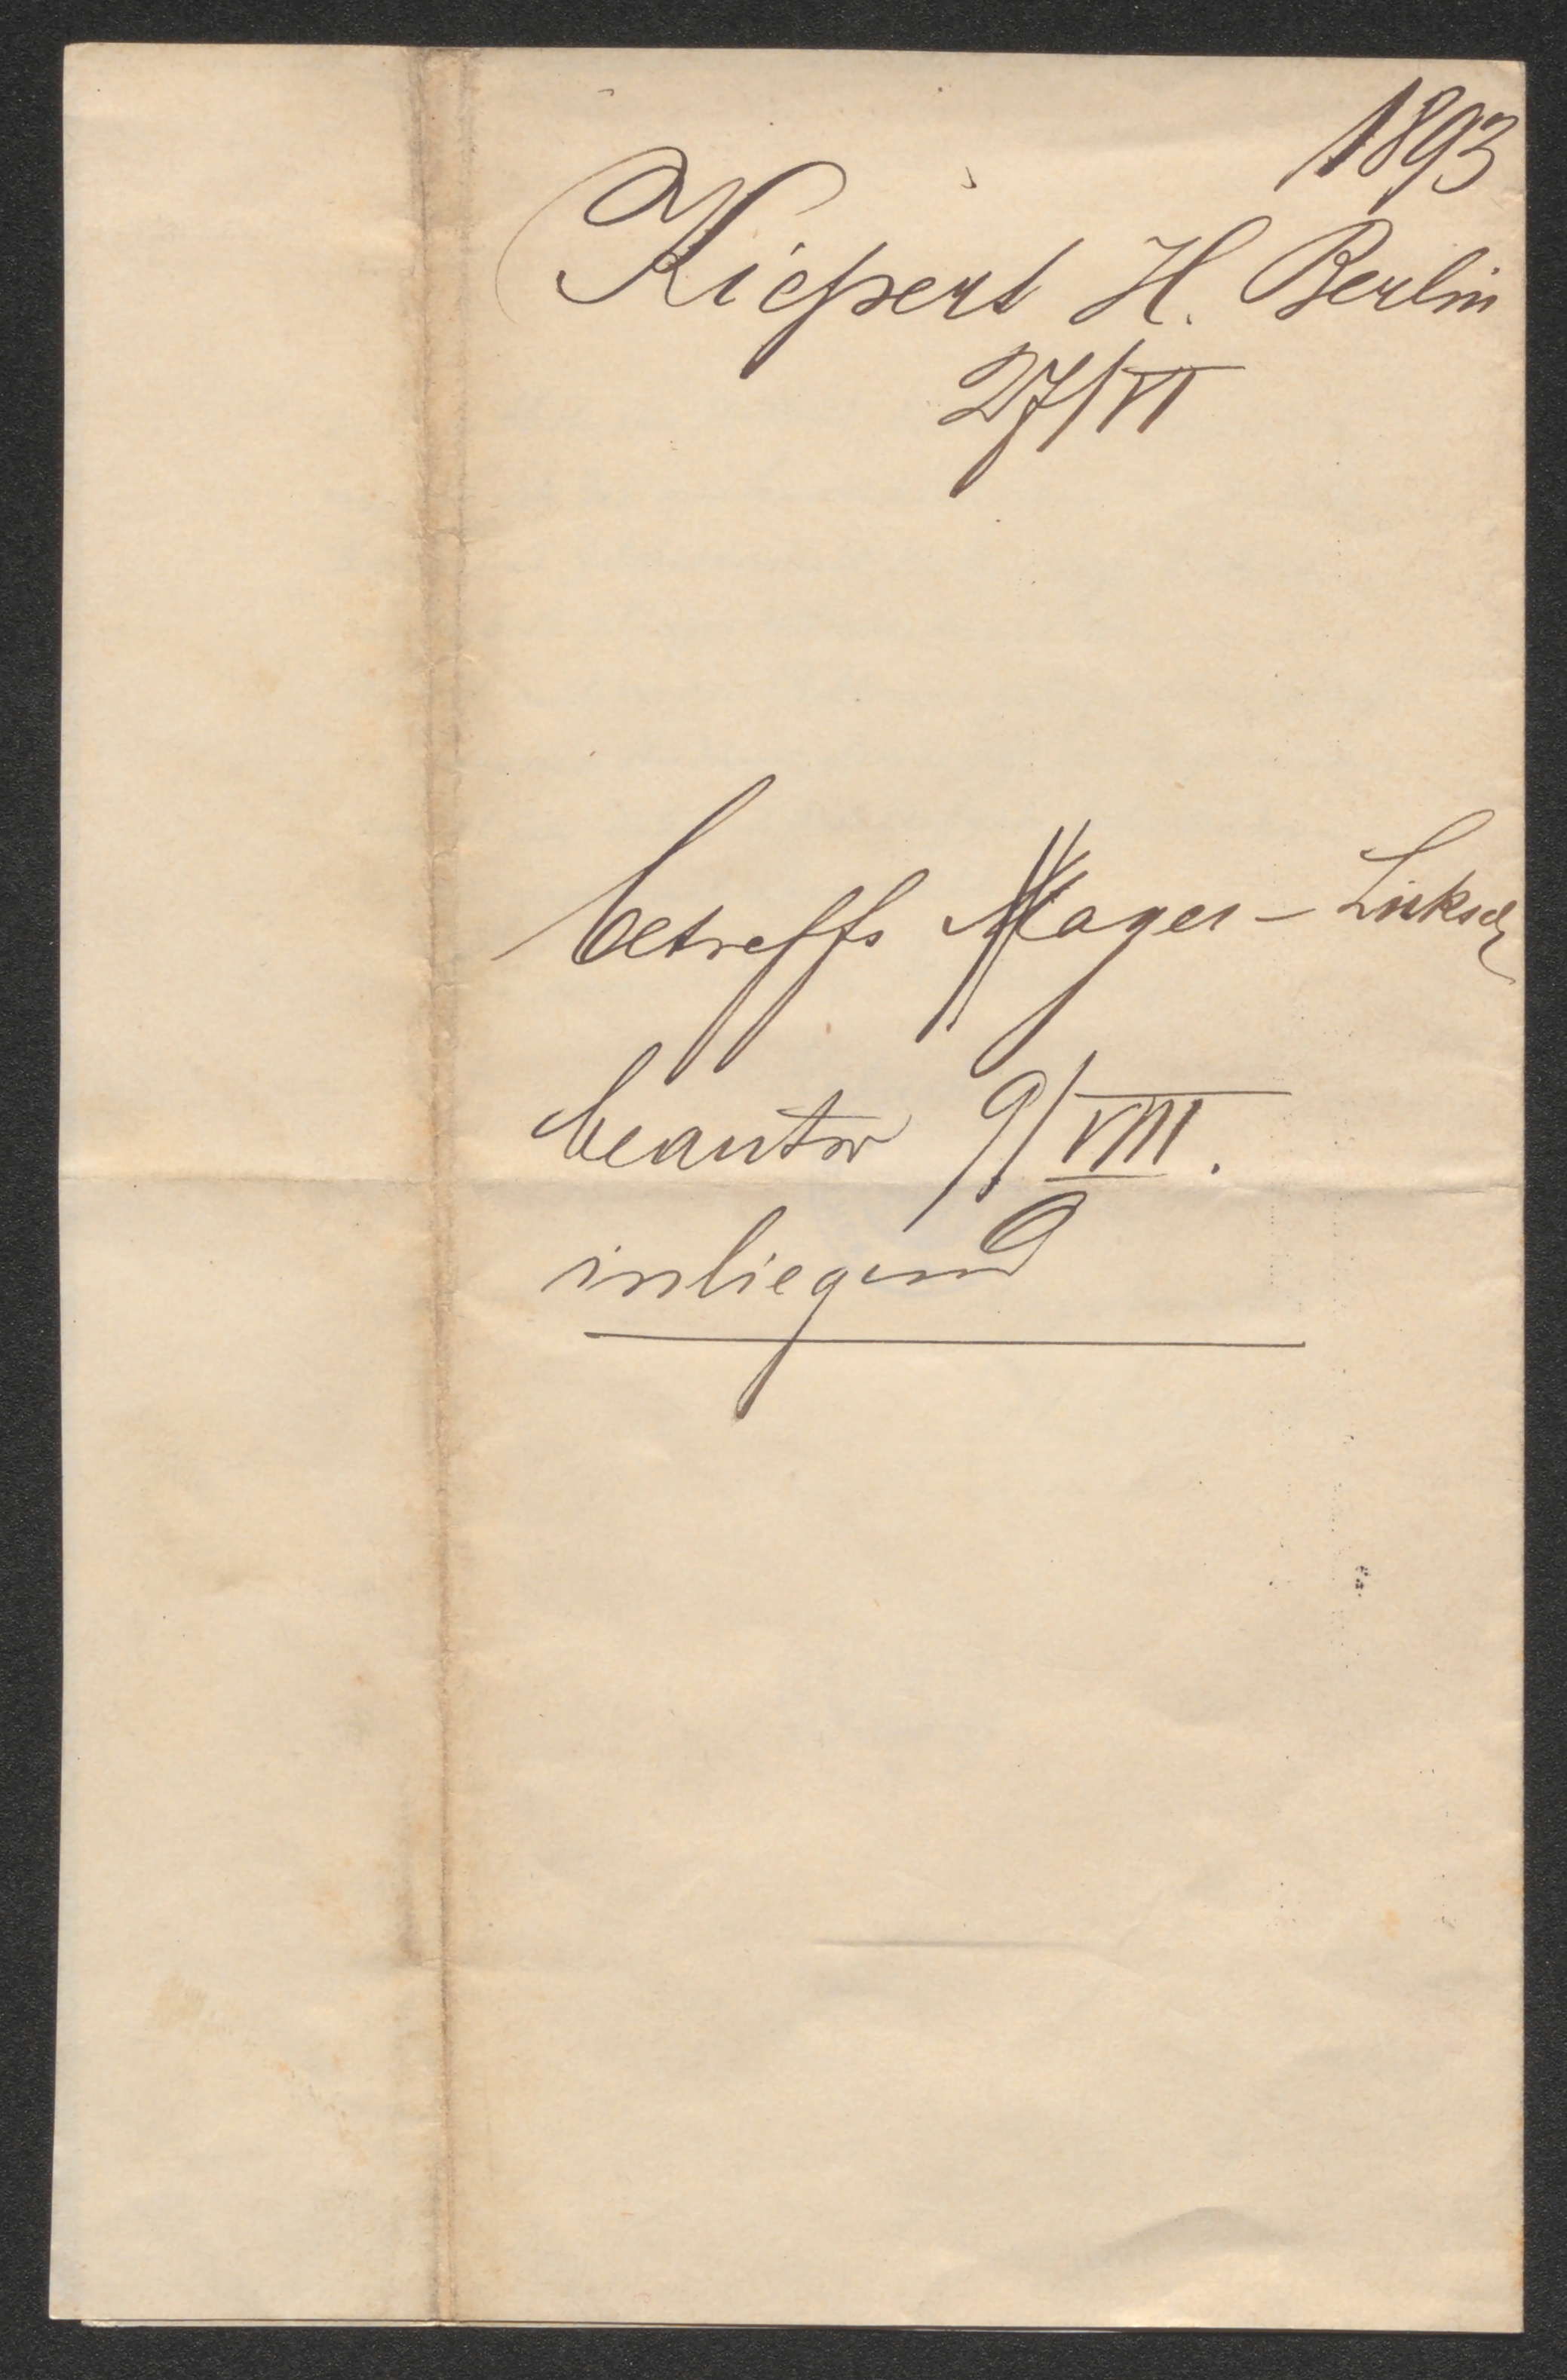 1893
Kiepert H. Berlin
27/VI
betreffs Mayer-
beantw 9/VIII.
inliegend